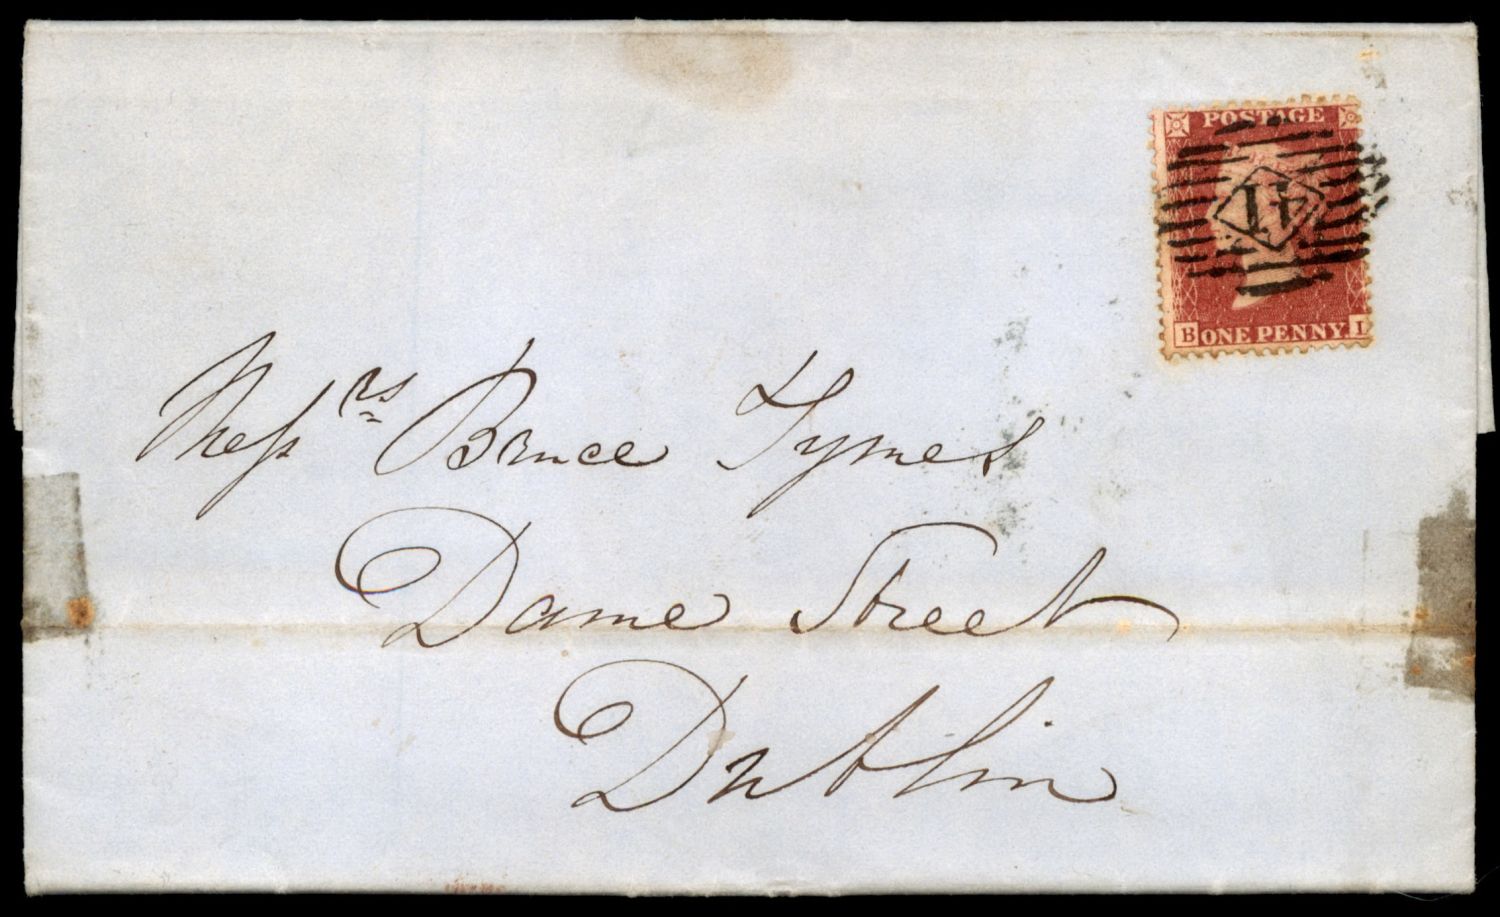 POSTAGE
41
B ONE PENNY I
Messrs Bruce Symes
Dame Street
Dublin